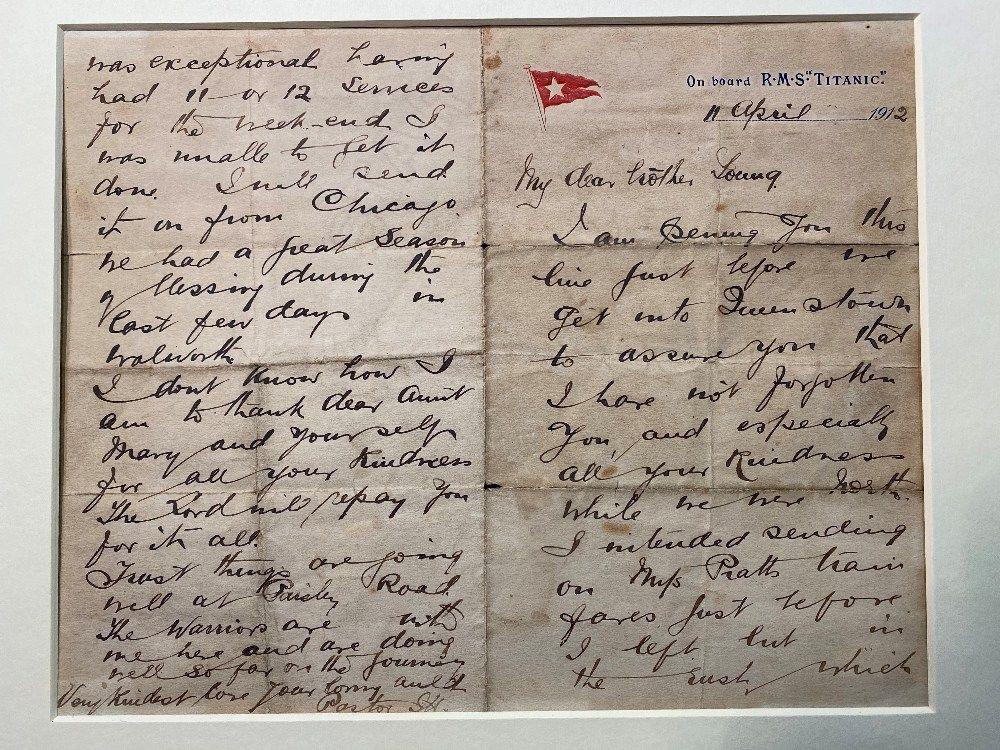 On board R·M·S "TITANIC".
11 April 1912
My dear brother Young.
I am penning you this
line just before we
get into Queenstown
to assure you that
I have not forgotten
you and especially
all your kindness
while we were North.
I intended sending
on Miss Pratts train
fares just before
I left but in
the rush which
was exceptional having
had 11 or 12 services
for the week-end I
was unable to get it
done. I will send
it on from Chicago.
We had a great season
of blessing during the
last few days in
Walworth.
I dont know how I
am to thank dear Aunt
Mary and yourself
for all your kindness
The Lord will repay you
for it all.
Trust things are going
well at Paisley Road
The Warriors are with
me here and are doing
well so far on the journey
Very kindest love your loving auld
Pastor